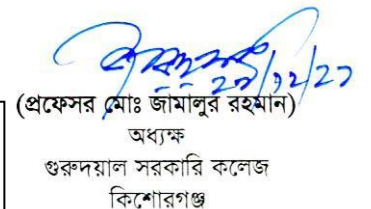 (প্রফেসর মোঃ জামালুর রহমান)
অধ্যক্ষ
গুরুদয়াল সরকারি কলেজ
কিশোরগঞ্জ